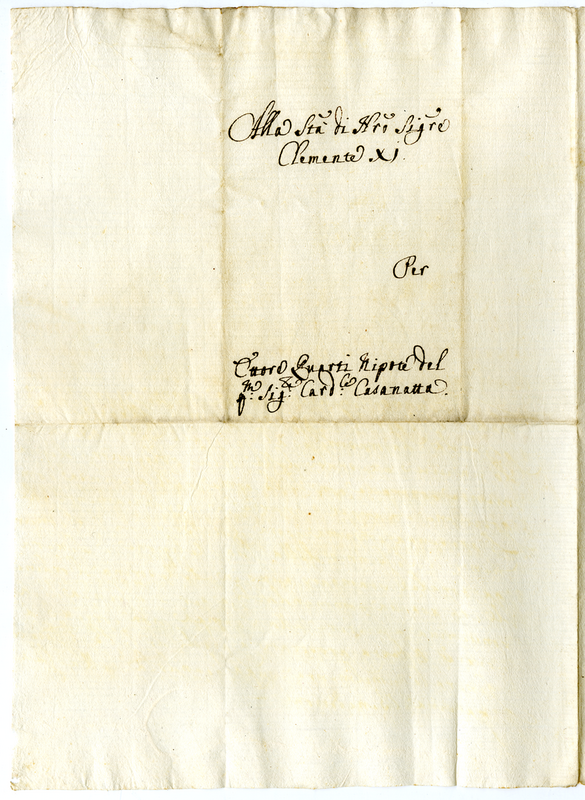 Alla Stà di Nrō Sigre
Clemente XI.
Per
Quarti Nipote del
q.m Sig.r Card.le Casanatta.